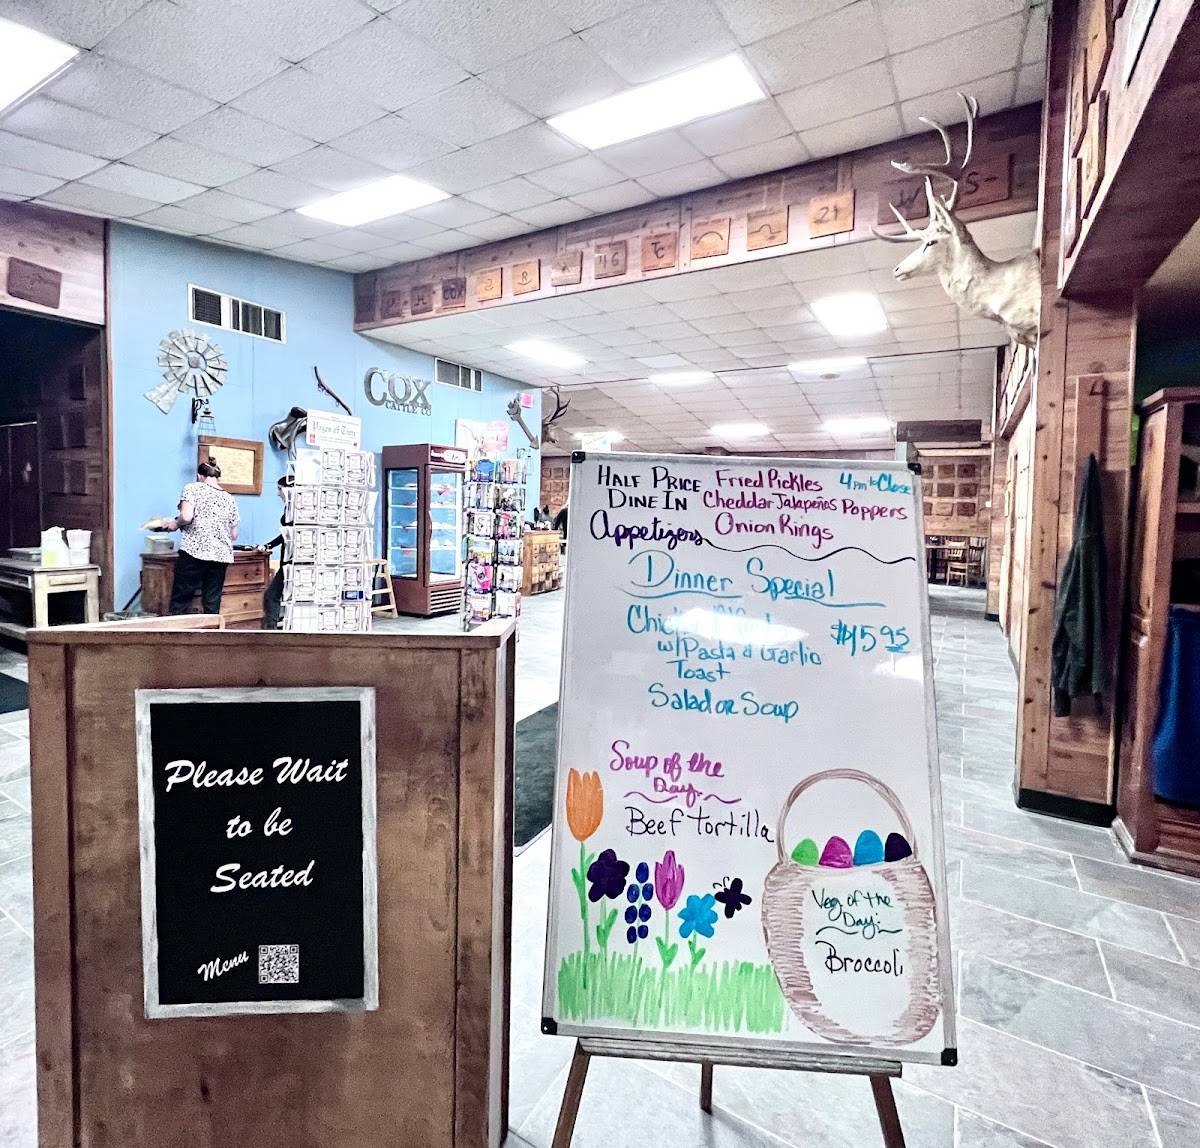 COX
CATTLE CO
COX
R
46
TC
21
W
S-
4
Please Wait
to be
Seated
Menu
HALF PRICE Fried Pickles 4pm to Close
DINE IN Cheddar Jalapeños Poppers
Appetizers Onion Rings
Dinner Special
$15.95
w/Pasta & Garlic
Toast
Salad or Soup
Soup of the
Day:
Beef Tortilla
Veg of the
Day:
Broccoli